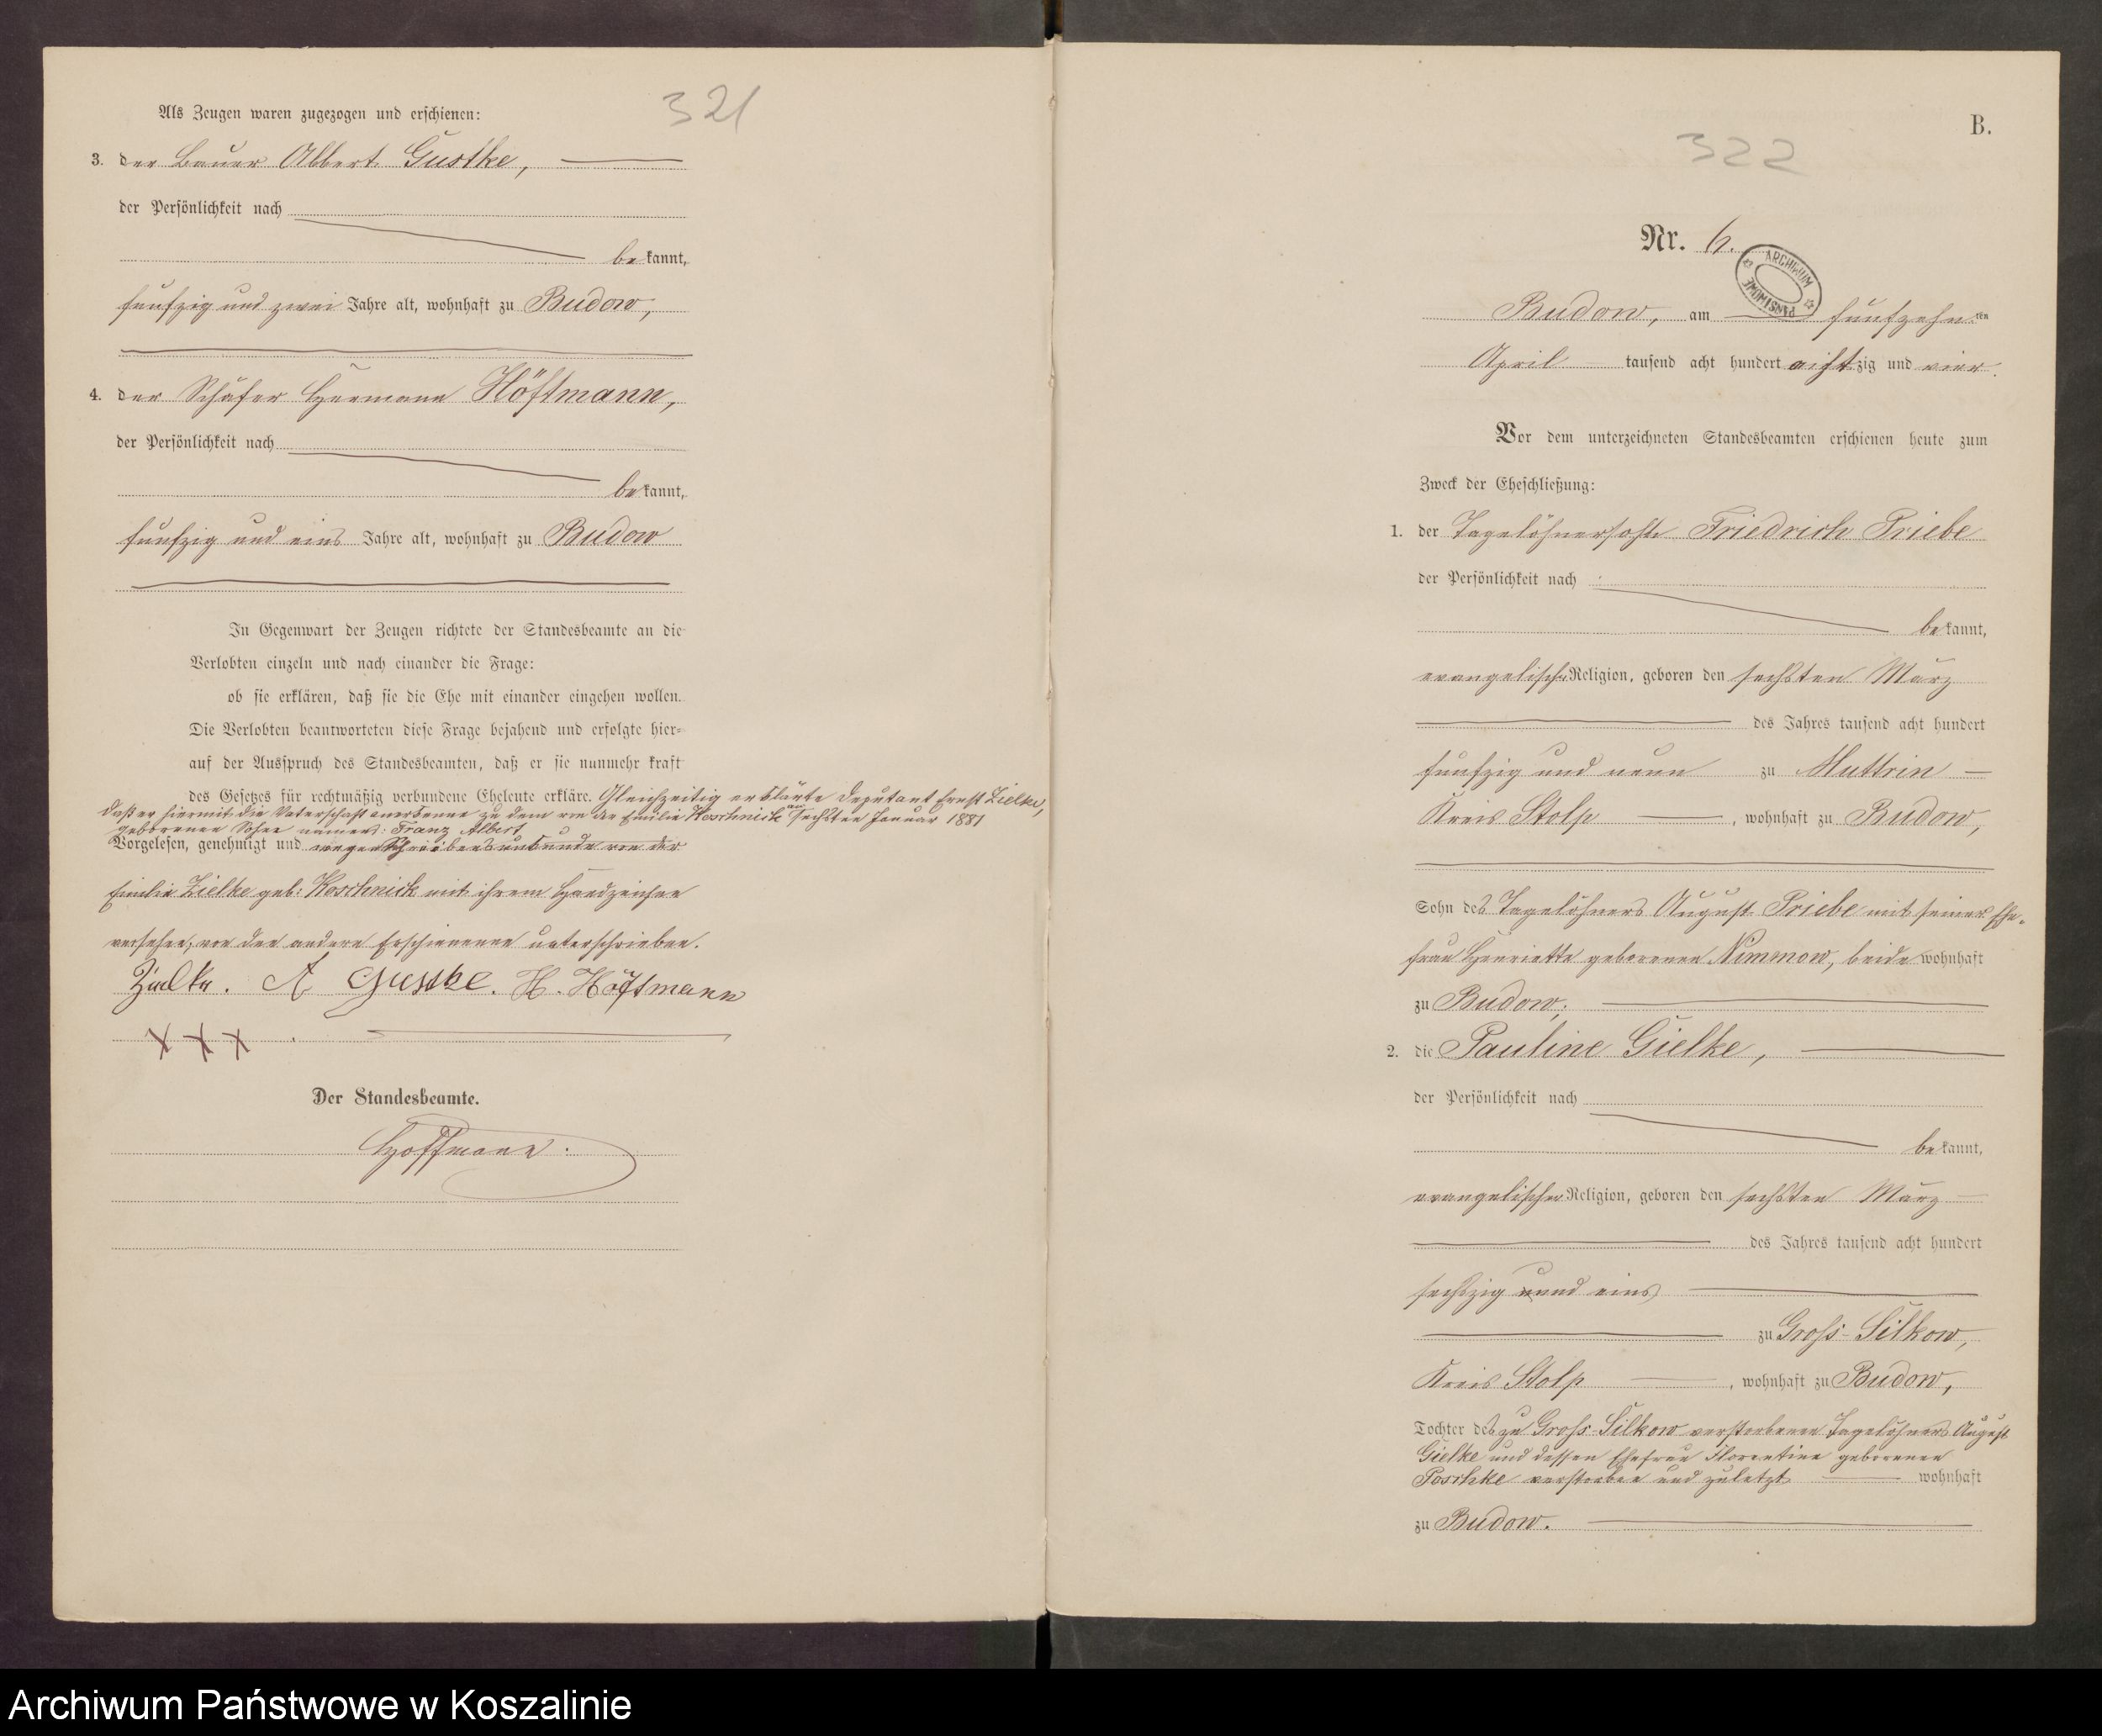 321
Als Zeugen waren zugezogen und erschienen:
3. der Bauer Albert Gustke,
der Persönlichkeit nach
bekannt,
funfzig und zwei Jahre alt, wohnhaft zu Budow,
4. der Schäfer Hermann Höftmann,
der Persönlichkeit nach
bekannt,
funfzig und eins Jahre alt, wohnhaft zu Budow
In Gegenwart der Zeugen richtete der Standesbeamte an die
Verlobten einzeln und nach einander die Frage:
ob sie erklären, daß sie die Ehe mit einander eingehen wollen.
Die Verlobten beantworteten diese Frage bejahend und erfolgte hier-
auf der Ausspruch des Standesbeamten, daß er sie nunmehr kraft
des Gesetzes für rechtmäßig verbundene Eheleute erkläre. Gleichzeitig erklärte Deputant Ernst Zielke,
daß er hiermit die Vaterschaft anerkenne zu dem von der Emilie Koschnick am sechsten Januar 1881
geborenen Sohne namens: Franz Albert
Vorgelesen, genehmigt und wegen Schreibensunkunde von der
Emilie Zielke geb: Koschnick mit ihrem Handzeichen
versehen, von den andern Erschienenen unterschrieben.
Zielke. A Gustke. H. Höftmann
XXX.
Der Standesbeamte.
Hoffmann.
B.
322
Nr. 6.
ARCHIWUM PAŃSTWOWE
Budow, am funfzehnten
April tausend acht hundert achtzig und vier.
Vor dem unterzeichneten Standesbeamten erschienen heute zum
Zweck der Eheschließung:
1. der Tagelöhnersohn Friedrich Priebe
der Persönlichkeit nach
bekannt,
evangelischer Religion, geboren den sechsten März
des Jahres tausend acht hundert
funfzig und neun zu Muttrin
Kreis Stolp, wohnhaft zu Budow,
Sohn des Tagelöhners August Priebe mit seiner Ehe-
frau Henriette geborenen Nimmow, beide wohnhaft
zu Budow;
2. die Pauline Gielke,
der Persönlichkeit nach
bekannt,
evangelischer Religion, geboren den sechsten März
des Jahres tausend acht hundert
sechszig und eins
zu Groß-Silkow,
Kreis Stolp, wohnhaft zu Budow,
Tochter des zu Groß-Silkow verstorbenen Tagelöhners August
Gielke und dessen Ehefrau Florentine geborenen
Poschke verstorben und zuletzt wohnhaft
zu Budow.
Archiwum Państwowe w Koszalinie